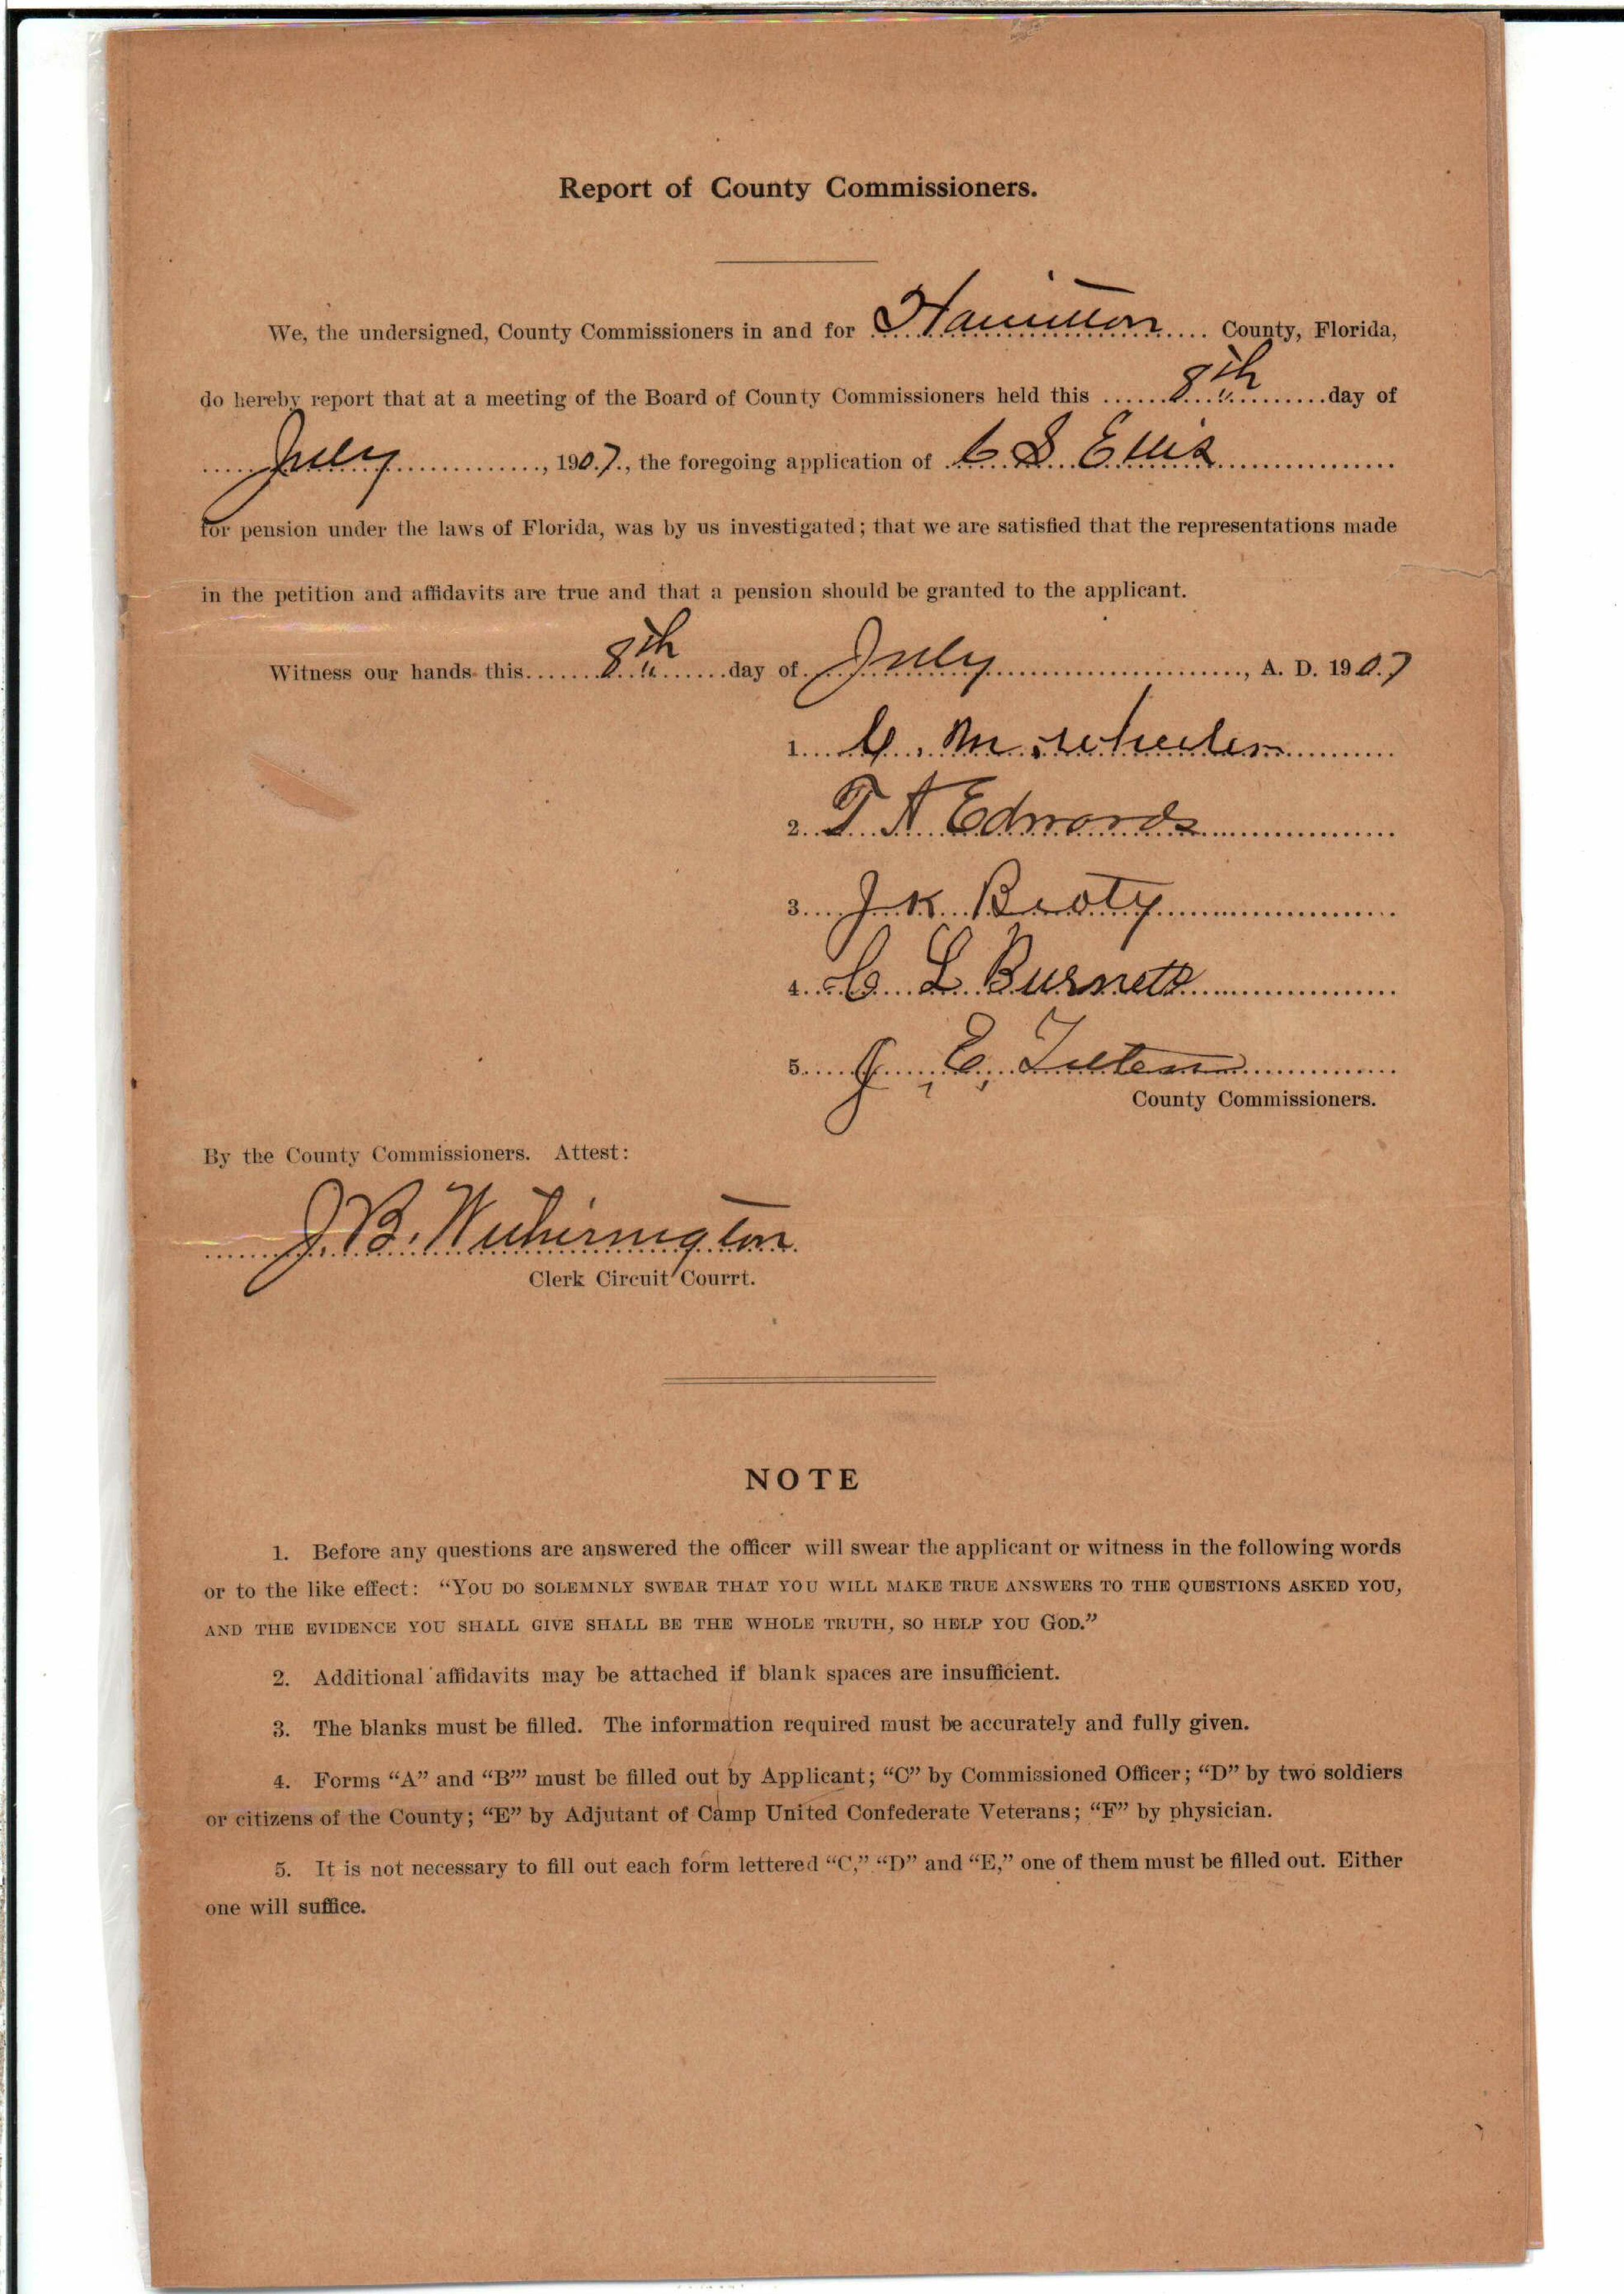 Report of County Commissioners.
We, the undersigned, County Commissioners in and for Hamilton County, Florida,
do hereby report that at a meeting of the Board of County Commissioners held this 8th day of
July, 1907, the foregoing application of C S Ellis
for pension under the laws of Florida, was by us investigated; that we are satisfied that the representations made
in the petition and affidavits are true and that a pension should be granted to the applicant.
Witness our hands this 8th day of July, A. D. 1907
1. M.
2. T A Edwards
3. J K
4. C L Burnett
5. J. E.
County Commissioners.
By the County Commissioners. Attest:
J. B. Witherington
Clerk Circuit Courrt.
NOTE
1. Before any questions are answered the officer will swear the applicant or witness in the following words
or to the like effect: “YOU DO SOLEMNLY SWEAR THAT YOU WILL MAKE TRUE ANSWERS TO THE QUESTIONS ASKED YOU,
AND THE EVIDENCE YOU SHALL GIVE SHALL BE THE WHOLE TRUTH, SO HELP YOU GOD.”
2. Additional affidavits may be attached if blank spaces are insufficient.
3. The blanks must be filled. The information required must be accurately and fully given.
4. Forms “A” and “B”’ must be filled out by Applicant; “C” by Commissioned Officer; “D” by two soldiers
or citizens of the County; “E” by Adjutant of Camp United Confederate Veterans; “F” by physician.
5. It is not necessary to fill out each form lettered “C,” “D” and “E,” one of them must be filled out. Either
one will suffice.